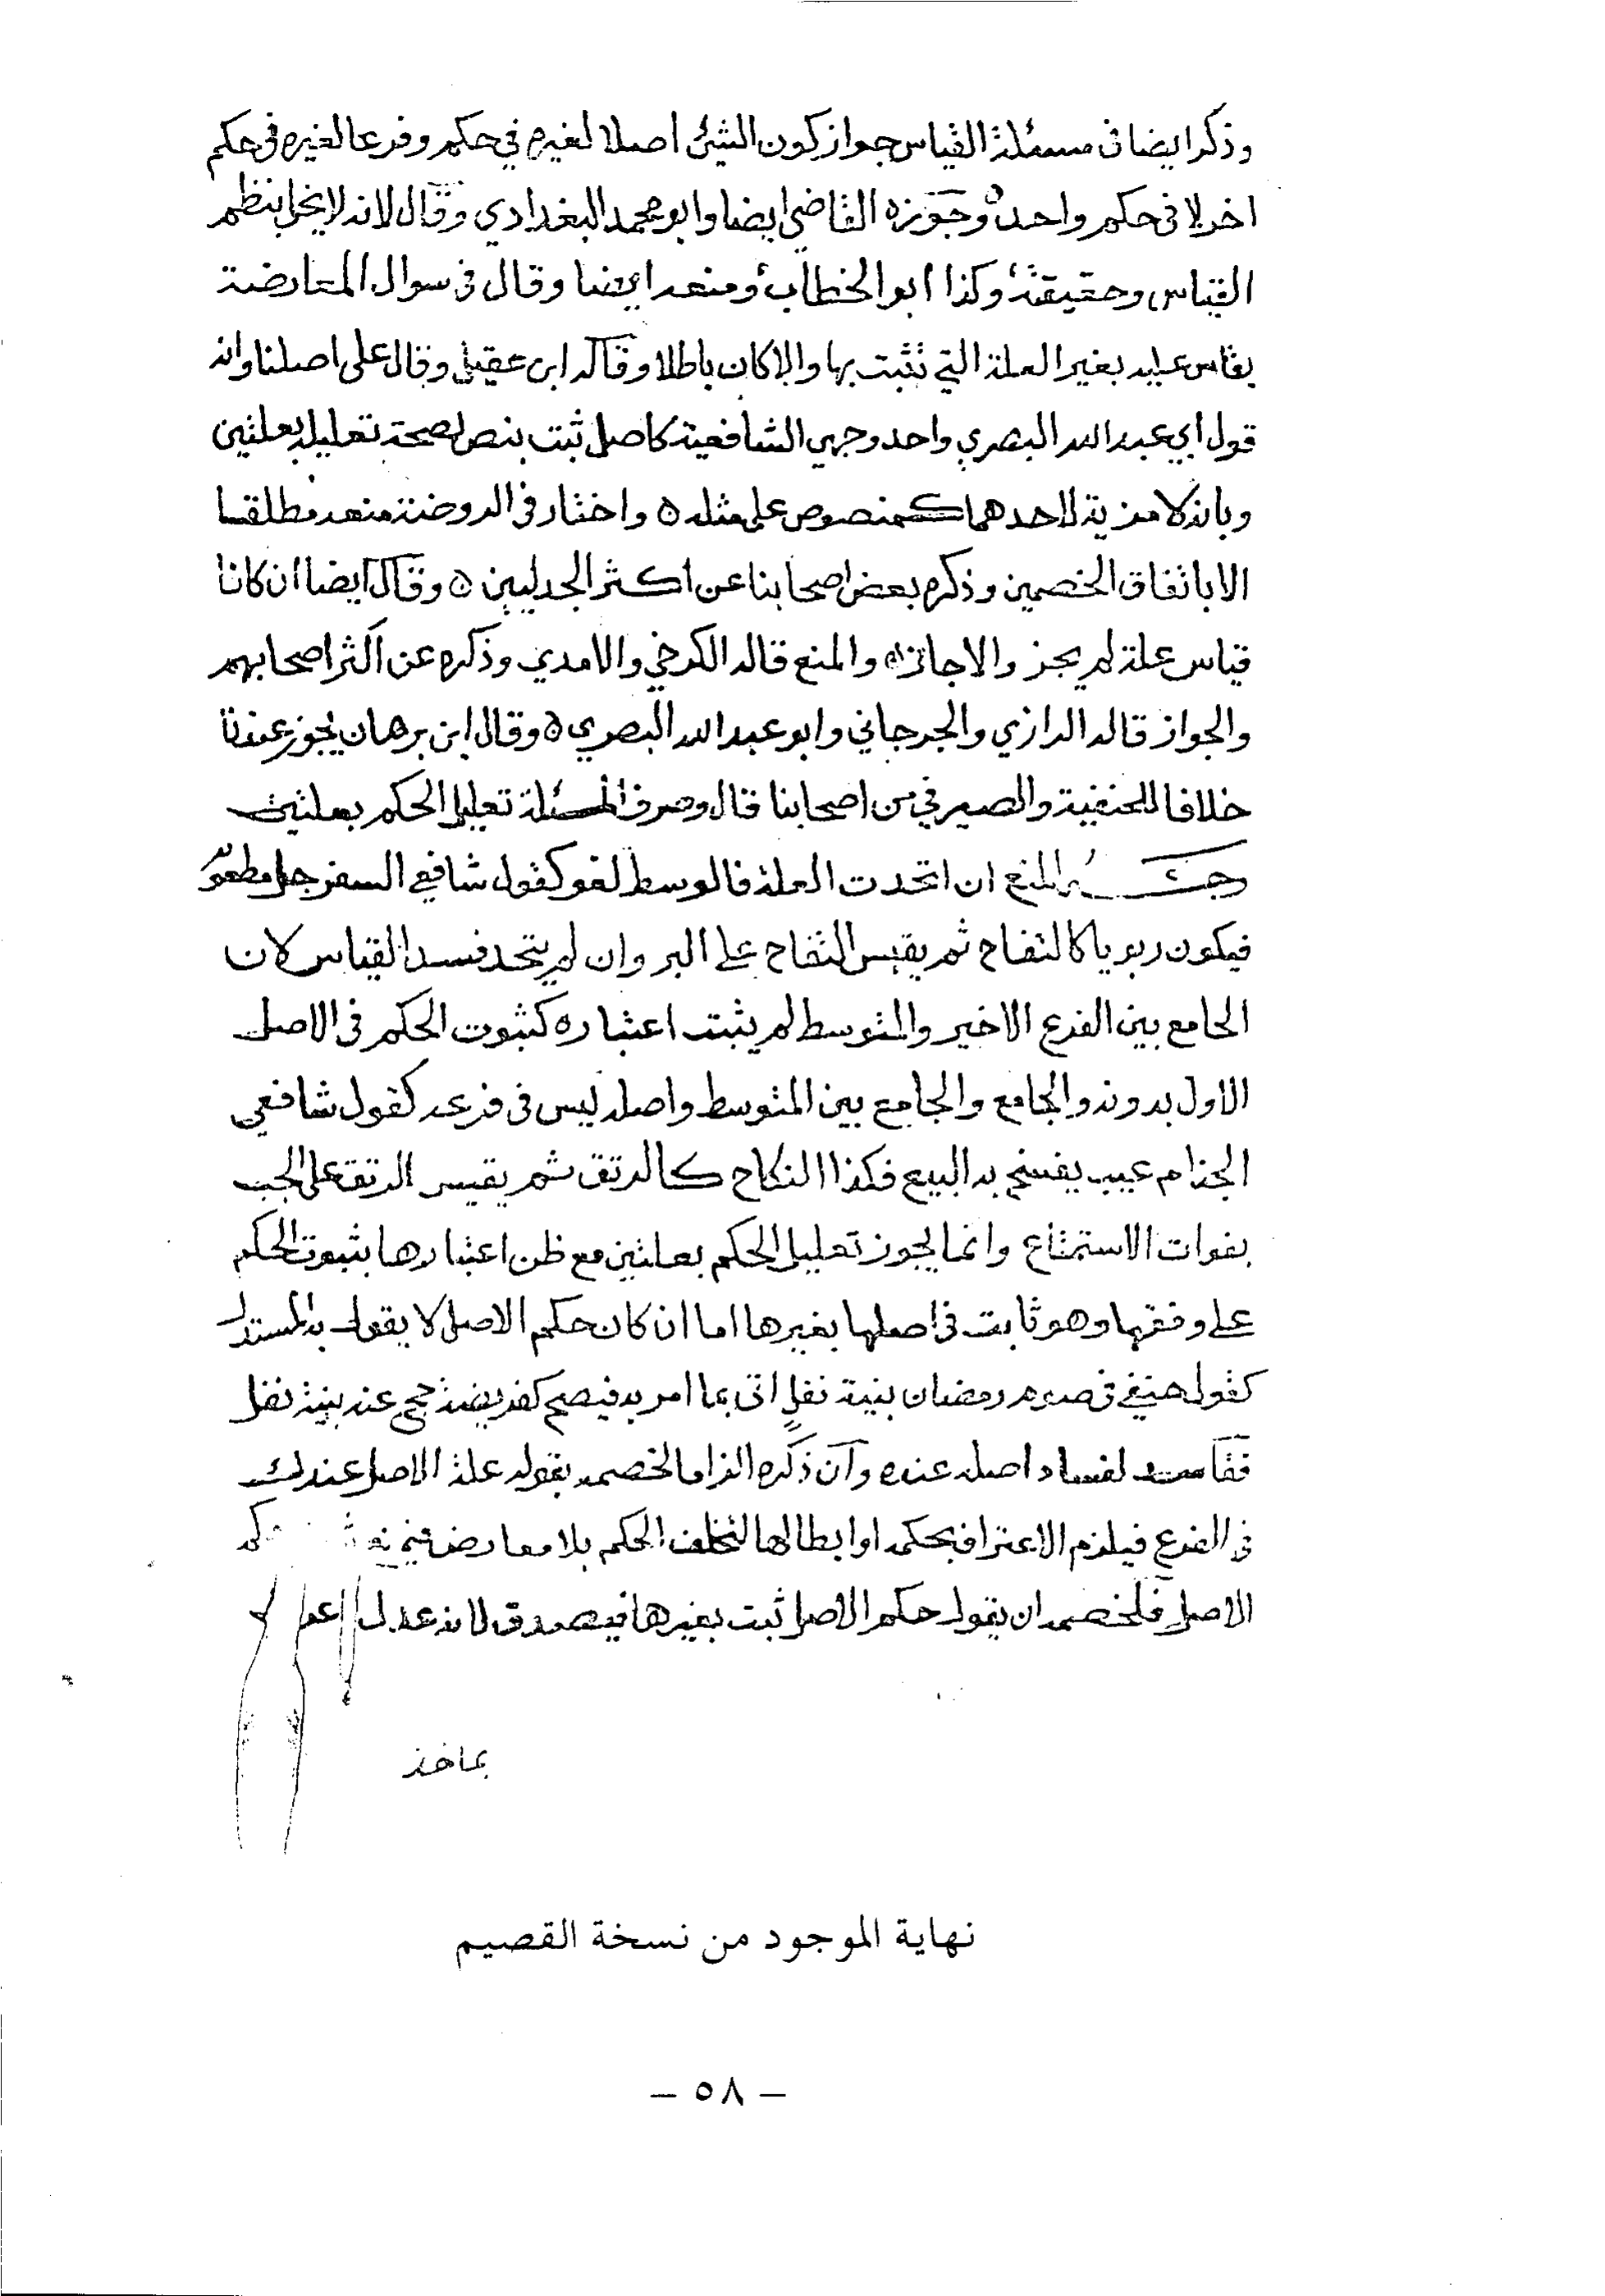 وذكر ايضا في مسئلة القياس جواز كون الشيئ اصلا لغيره في حكم وفرعا لغيره في حكم
اخر لا في حكم واحد ه وجوزه القاضي ايضا وابو محمد البغدادي وقال لانه لا يخل بنظم
القياس وحقيقته وكذا ابو الخطاب ومنعه ايضا وقال في سوال المعارضة
يقاس عليه بغير العلة التي تثبت بها والا كان باطلا وقاله ابن عقيل وقال على اصلنا وانه
قول ابي عبد الله البصري واحد وجهي الشافعية كاصل ثبت بنص لصحة تعليله بعلتين
وبانه لا مزية لاحدهما كمنصوص على مثله ه واختار في الروضة منعه مطلقا
الا باتفاق الخصمين وذكره بعض اصحابنا عن اكثر الجدليين ه وقال ايضا ان كانا
قياس علة لم يجز والا جاز ه والمنع قاله الكرخي والامدي وذكره عن اكثر اصحابهم
والجواز قاله الرازي والجرجاني وابو عبد الله البصري ه وقال ابن برهان يجوز عندنا
خلافا للحنفية والصيرفي من اصحابنا قال وحرف المسئلة تعليل الحكم بعلتين
وجه المنع ان اتحدت العلة فالوسط لغو كقول شافعي السفرجل مطعوم
فيكون ربويا كالتفاح ثم يقيس التفاح على البر وان لم يتحد فسد القياس لان
الجامع بين الفرع الاخير والمتوسط لم يثبت اعتباره كثبوت الحكم في الاصل
الاول بدونه والجامع والجامع بين المتوسط واصله ليس في فرعه كقول شافعي
الجذام عيب يفسخ به البيع فكذا النكاح كالرتق ثم يقيس الرتق على الجب
بفوات الاستمتاع وانما يجوز تعليل الحكم بعلتين مع ظن اعتبارها بثبوت الحكم
على وفقها وهو ثابت في اصلها بغيرها اما ان كان حكم الاصل لا يقول به المستدل
كقول حنفي في صوم رمضان بنية نفل اتى بما امر به فيصح كفريضة حج عنه بنية نفل
ففاسد لفساد اصله عنده وان ذكره الزاما لخصمه بقوله علة الاصل عندك
في الفرع فيلزم الاعتراف بحكمه او ابطالها لتخلف الحكم بلا معارض
الاصل فلخصمه ان يقول حكم الاصل ثبت بغيرها فيصدق لانه عدل
بماخذ
نهاية الموجود من نسخة القصيم
– ٥٨ –